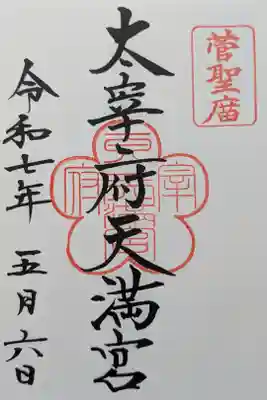 菅聖庿
太宰府天満宮
令和七年 五月六日